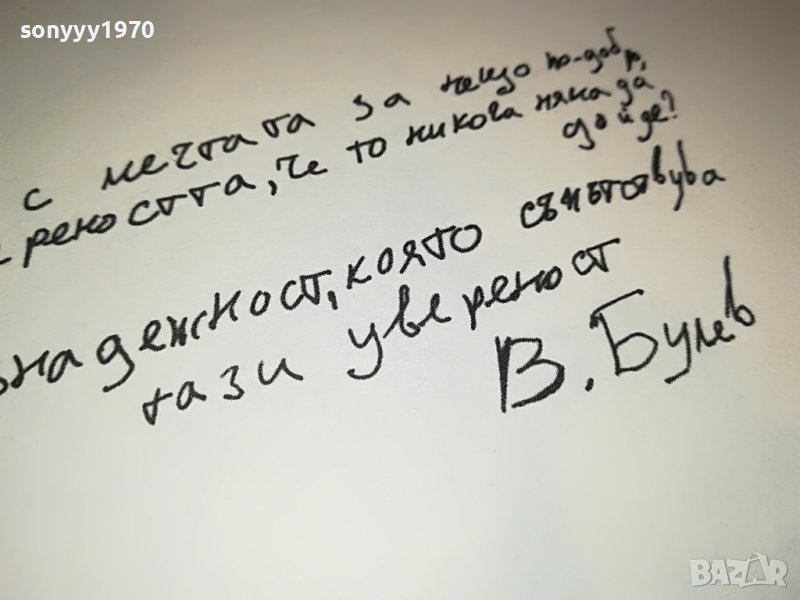 sonyyy1970
с мечтата за нещо по-добро,
реността, че то никога няма да
дойде?
знадежност, която съпътствува
тази увереност
В. Булев
BAZAR